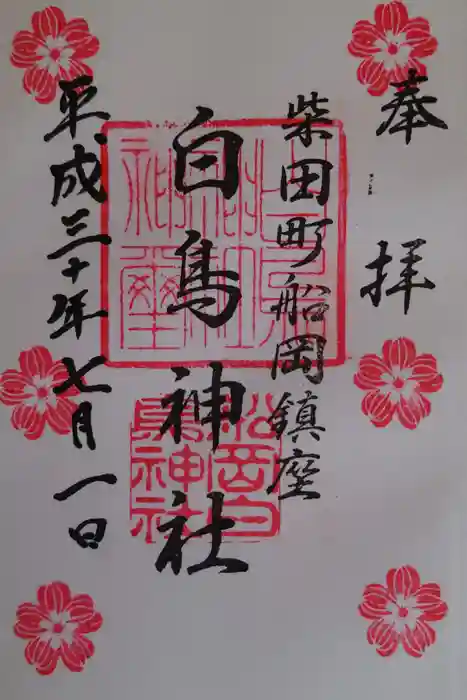 奉拝
柴田町船岡鎮座
白鳥神社
平成三十年七月一日